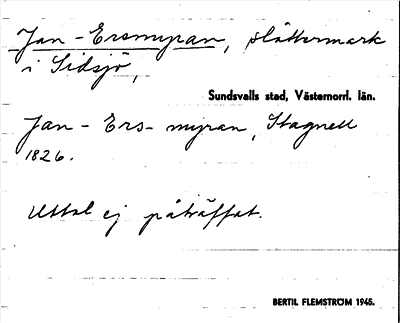 Jan-Ersmyran, slåttermark
i Sidsjö,
Sundsvalls stad, Västernorrl. län.
Jan-Ers-myran, Stagnell
1826.
Uttal ej påträffat.
BERTIL FLEMSTRÖM 1945.